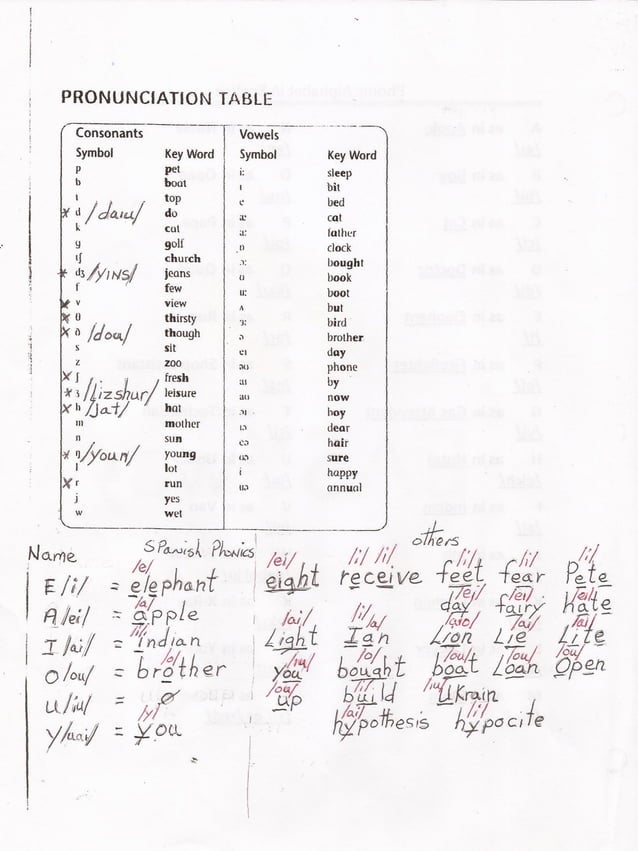 PRONUNCIATION TABLE
Consonants Vowels
Symbol Key Word Symbol Key Word
p pet i: sleep
b boat ɪ bit
t top e bed
x d /daiu/ do æ cat
k cut ɑ: father
g golf ɒ clock
tʃ church ɔ: bought
* dʒ /YINS/ jeans ʊ book
f few u: boot
x v view ʌ but
x θ thirsty ɜ: bird
x ð /dou/ though ə brother
s sit eɪ day
z zoo əʊ phone
x ʃ fresh aɪ by
* ʒ /lizshur/ leisure aʊ now
x h /Jat/ hat ɔɪ boy
m mother ɪə dear
n sun eə hair
* ŋ /youn/ young ʊə sure
l lot i happy
x r run uə annual
j yes
w wet
Name Spanish Phonics others
/e/ /ei/ /i/ /i/ /i/ /i/ /i/
E /i/ = elephant eight receive feet fear Pete
/a/ /ei/ /ei/ /ei/
A /ei/ = apple day fairy hate
/i/ /ai/ /i/a/ /aio/ /ai/ /ai/
I /ai/ = indian Light Ian Lion Lie Lite
/o/ /iu/ /o/ /ou/ /ou/ /ou/
O /ou/ = brother you bought boat Loan Open
/ou/ /iu/
U /iu/ = ø up build Ukrain
/y/ /ai/ /i/
Y /uai/ = you hypothesis hypocite